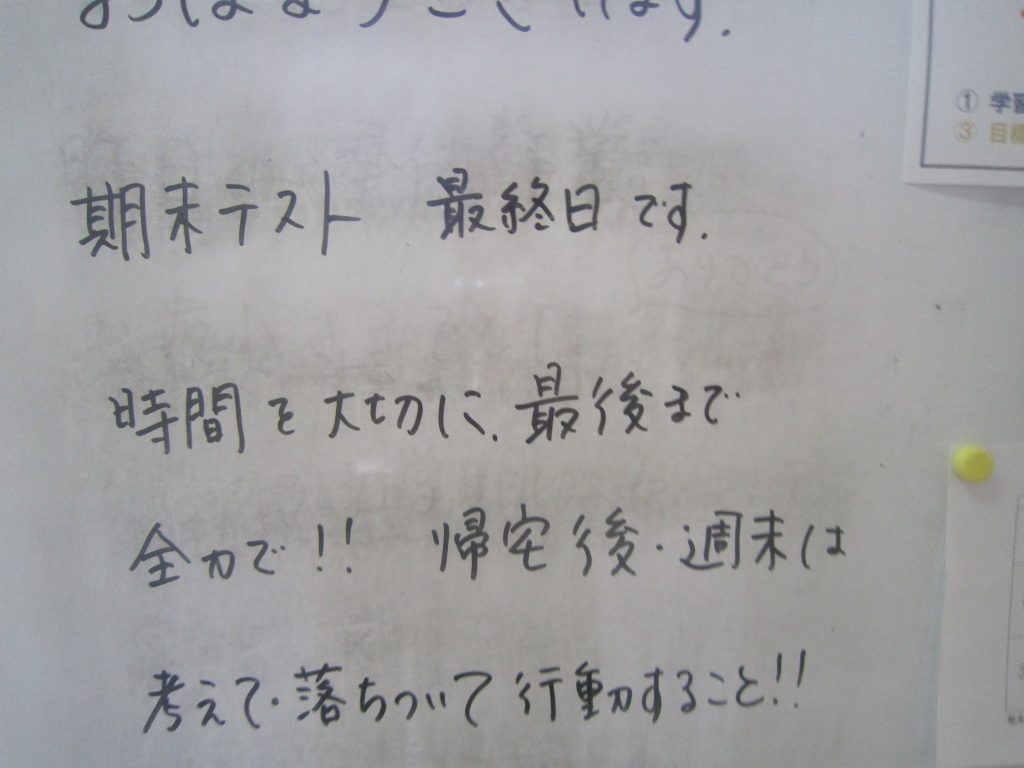 おはようございます.
期末テスト 最終日です.
時間を大切に、最後まで
全力で!! 帰宅後・週末は
考えて・落ちついて行動すること!!
① 学習
③ 目標